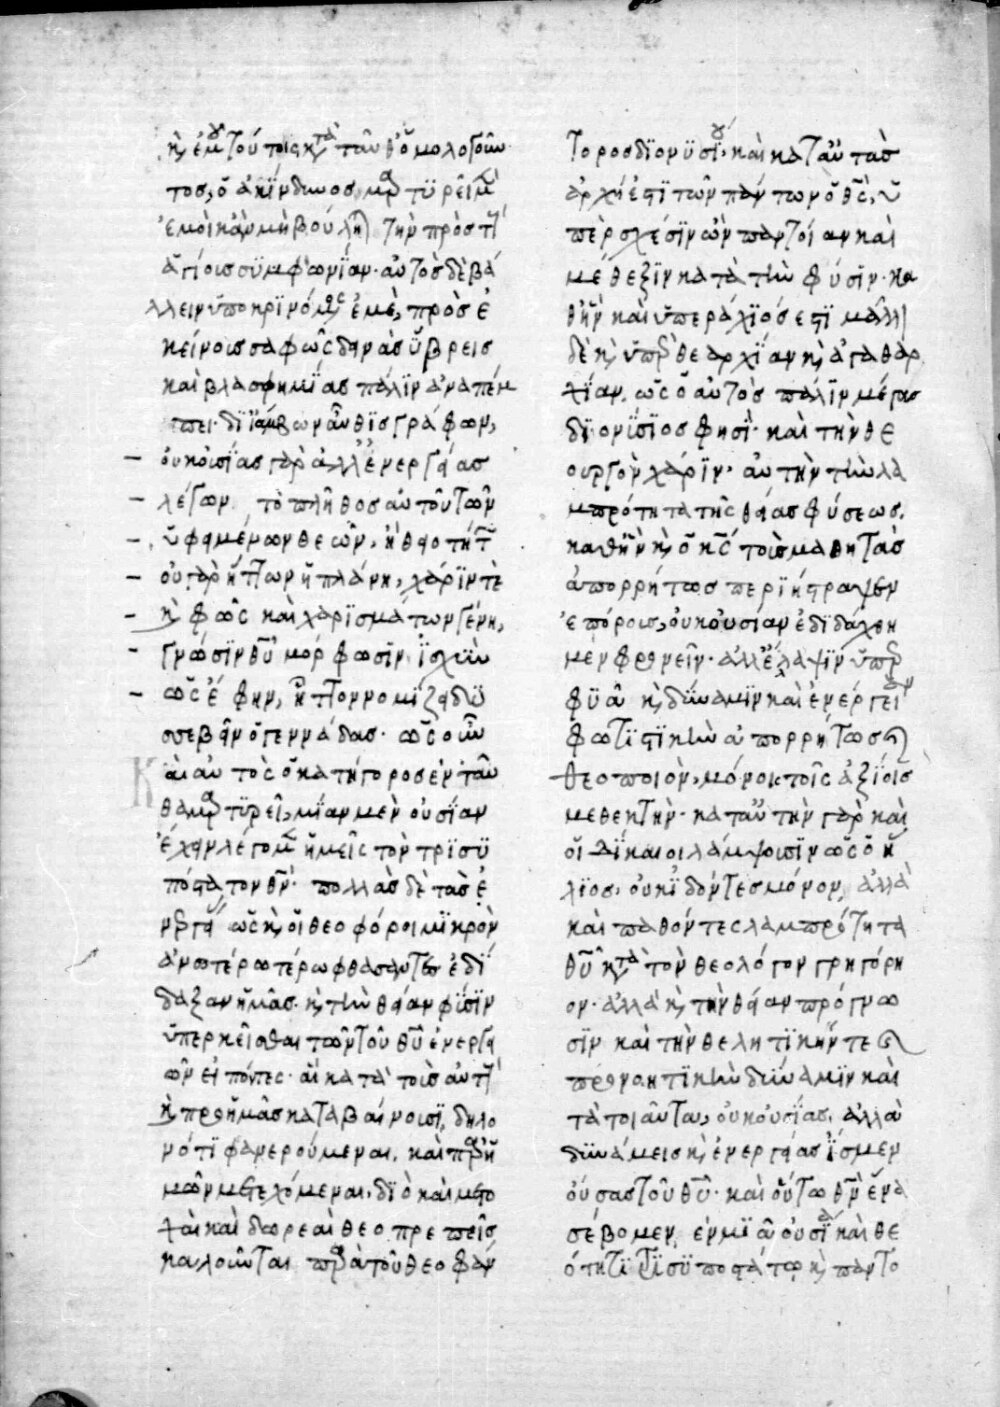 κ, ἐμ τούτοις κτὰ ταῦθ ὁμολογῶν
τος, ὁ ἀκίνδυνος μρτυρεῖ μὲ
ἐμοὶ κἂν μὴ βούλη τὴν πρὸς τ
ἁγίοις συμφωνίαν· αὐτὸς δὲ βά
λλειν ὑποκρινόμος ἐμὲ, πρὸς ἐ
κείνοις σαφῶς δεινὰς ὕβρεις
καὶ βλασφημίας πάλιν ἀναπέμ
πει· δι ἰάμβων αὖθις γράφων,
οὐκ οὐσίας γὰρ ἀλλ ἐνεργείας
λέγων, τὸ πλῆθος αὐτοῦ τῶν
ὑφειμένων θεῶν, ἡ θεότητ
οὐ γὰρ ἧττων ἡ πλάνη, χάριν τὲ
κ φῶς καὶ χαρίσματων γένη,
γνῶσιν θυ μόρφωσιν ἰσχὺν
ὡς ἔφην, ἧττον νομίζει δυ
σσεβεῖν ὁ γεννάδας· ὡς οὖν
Καὶ αὐτὸς ὁ κατήγορος ἐνταῦ
θα μρτυρεῖ, μίαν μὲν οὐσίαν
ἔχειν λέγομ ἡμεῖς τὸν τρισυ
πόστατον θν· πολλὰς δὲ τὰς ἐ
νργεί ὡς κ, οἱ θεοφόροι μικρὸν
ἀνωτέρω φθάσαντες ἐδί
δαξαν ἡμᾶς· κ, τὴν θείαν φύσιν
ὑπερκεῖσθαι τῶν τοῦ θυ ἐνεργει
ῶν εἰπόντες· αἳ κατὰ τοὺς αὐτ
κ πρ ἡμᾶς καταβαίνουσι, δηλο
νότι φανερούμεναι, καὶ πρ ἡ
μῶν μετεχόμεναι· διὸ καὶ μετο
χαὶ καὶ δωρεαὶ θεοπρεπεῖς
καλοῦνται πρὰ τοῦ θεοφάν
τορος διονυσίου· καὶ κατ αὐτὰς
ἀρχή ἐστι τῶν πάντων ὁ θς, ὑ
πὲρ σχέσιν ὢν παντοίαν καὶ
μέθεξιν κατὰ τὴν φύσιν· κα
θ ἣν καὶ ὑπεράρχιός ἐστι μᾶλλ
δὲ κ, ὑπρ θεαρχίαν κ, ἀγαθαρ
χίαν, ὡς ὁ αὐτὸς πάλιν μέγας
διονύσιος φησὶ· καὶ τὴν θε
ουργὸν χάριν, αὐτὴν τὴν λα
μπρότητα τῆς θείας φύσεως,
καθ ἣν κ, ὁ κς τοὺς μαθητὰς
ἀπορρήτως περιήστραψεν
ἐπόροις, οὐκ οὐσίαν ἐδιδάχθη
μεν φρονεῖν· ἀλλ ἔλαμψιν ὑπρ
φυᾶ κ, δύναμιν καὶ ἐνέργειαν
φωτιστικὴν ἀπορρήτως
θεοποιὸν, μόνοις τοῖς ἀξίοις
μεθεκτὴν· κατ αὐτὴν γὰρ καὶ
οἱ δίκαιοι λάμψουσιν ὡς ὁ ἥ
λιος, οὐκ ἰδόντες μόνον, ἀλλὰ
καὶ παθόντες λαμπρότητα
θυ κτὰ τὸν θεολόγον γρηγόρι
ον· ἀλλὰ κ, τὴν θείαν πρόγνω
σιν καὶ τὴν θελητικήν τε
προνοητικὴν δύναμιν καὶ
τὰ τοιαῦτα, οὐκ οὐσίας, ἀλλὰ
δυνάμεις κ, ἐνεργείας ἴσμεν
οὔσας τοῦ θυ· καὶ οὕτω θν ἕνα
σέβομεν, ἐν μιᾶ οὐσία καὶ θε
ότητι τρισυποστάτω κ, παντο